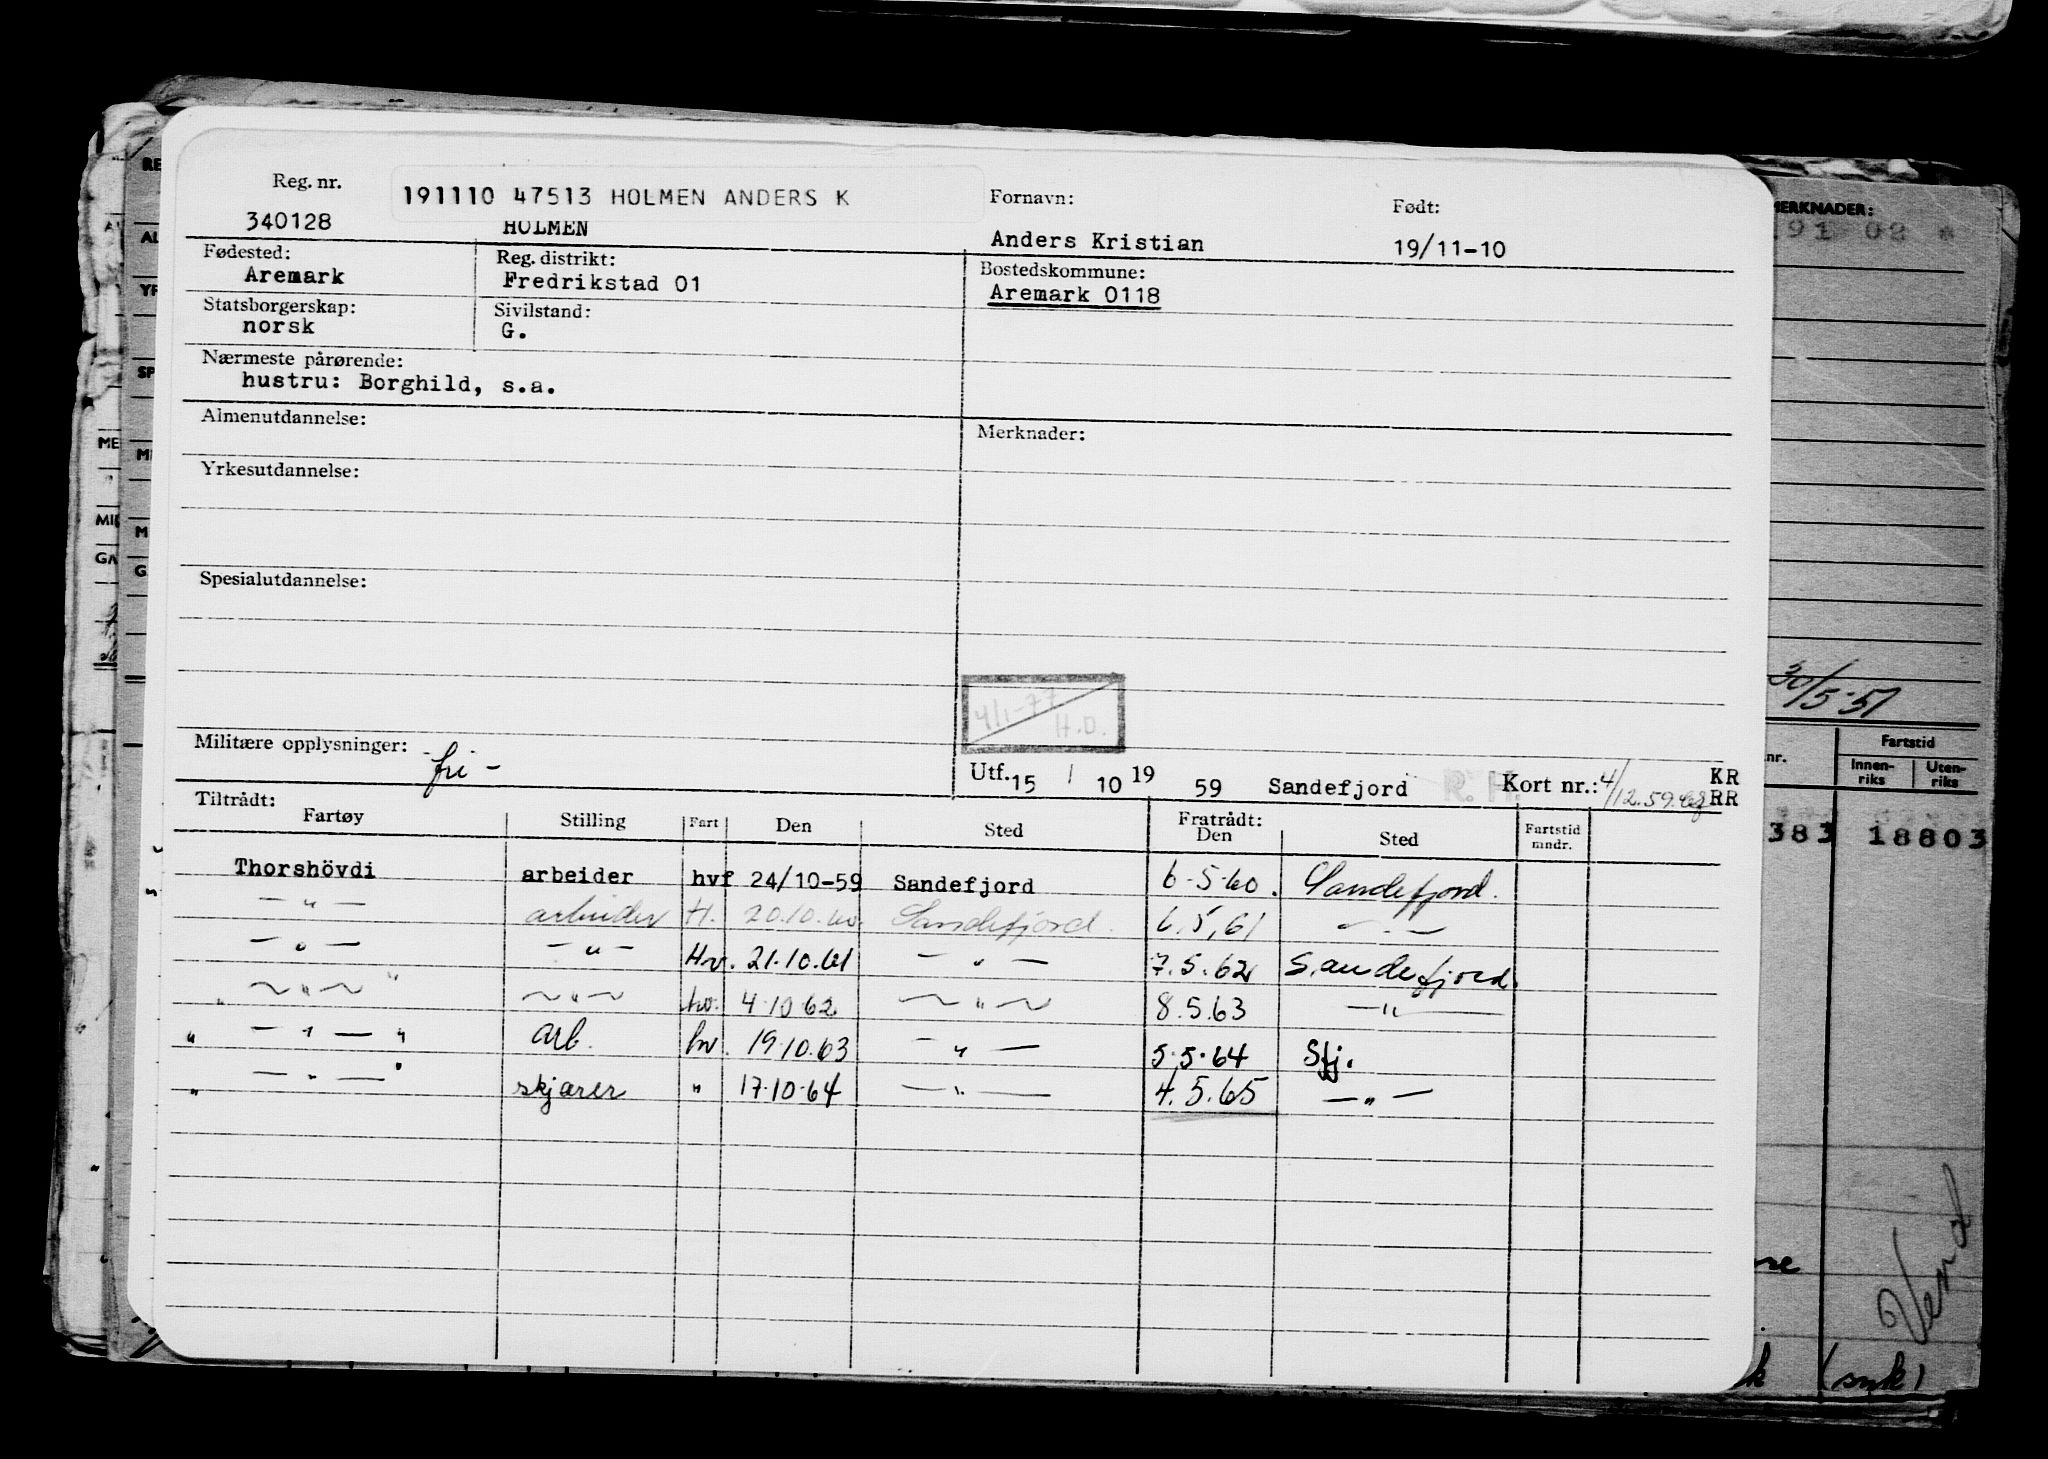 Reg. nr. 191110 47513 HOLMEN ANDERS K Fornavn: Født:
340128 HOLMEN Anders Kristian 19/11-10
Fødested: Reg. distrikt: Bostedskommune:
Aremark Fredrikstad 01 Aremark 0118
Statsborgerskap: Sivilstand:
norsk G.
Nærmeste pårørende:
hustru: Borghild, s.a.
Almenutdannelse: Merknader:
Yrkesutdannelse:
Spesialutdannelse:
4/1-77
H.O.
Militære opplysninger: fri -
Utf. 15 / 10 19 59 Sandefjord R. H. Kort nr.: 4/12.59 KR RR
Tiltrådt: Fratrådt:
Fartøy Stilling Fart Den Sted Den Sted Fartstid mndr.
Thorshövdi arbeider hvf 24/10-59 Sandefjord 6-5-60. Sandefjord.
— " — arbeider H. 20.10.60. Sandefjord. 6.5.61 — " —
— " — — " — Hv. 21.10.61 — " — 7.5.62 Sandefjord.
" — " — " — " — hv. 4.10.62 — " — 8.5.63 — " —
" — " — " arb. hv. 19.10.63 — " — 5.5.64 Sfj.
" — " — " skjærer " 17.10.64 — " — 4.5.65 — " —
MERKNADER:
91 02 *
30/5-51
nr. Fartstid
Innen-riks Uten-riks
383 18803
Vend
(smk)
RE
AL
YR
SP
ME
MI
GA
M
G